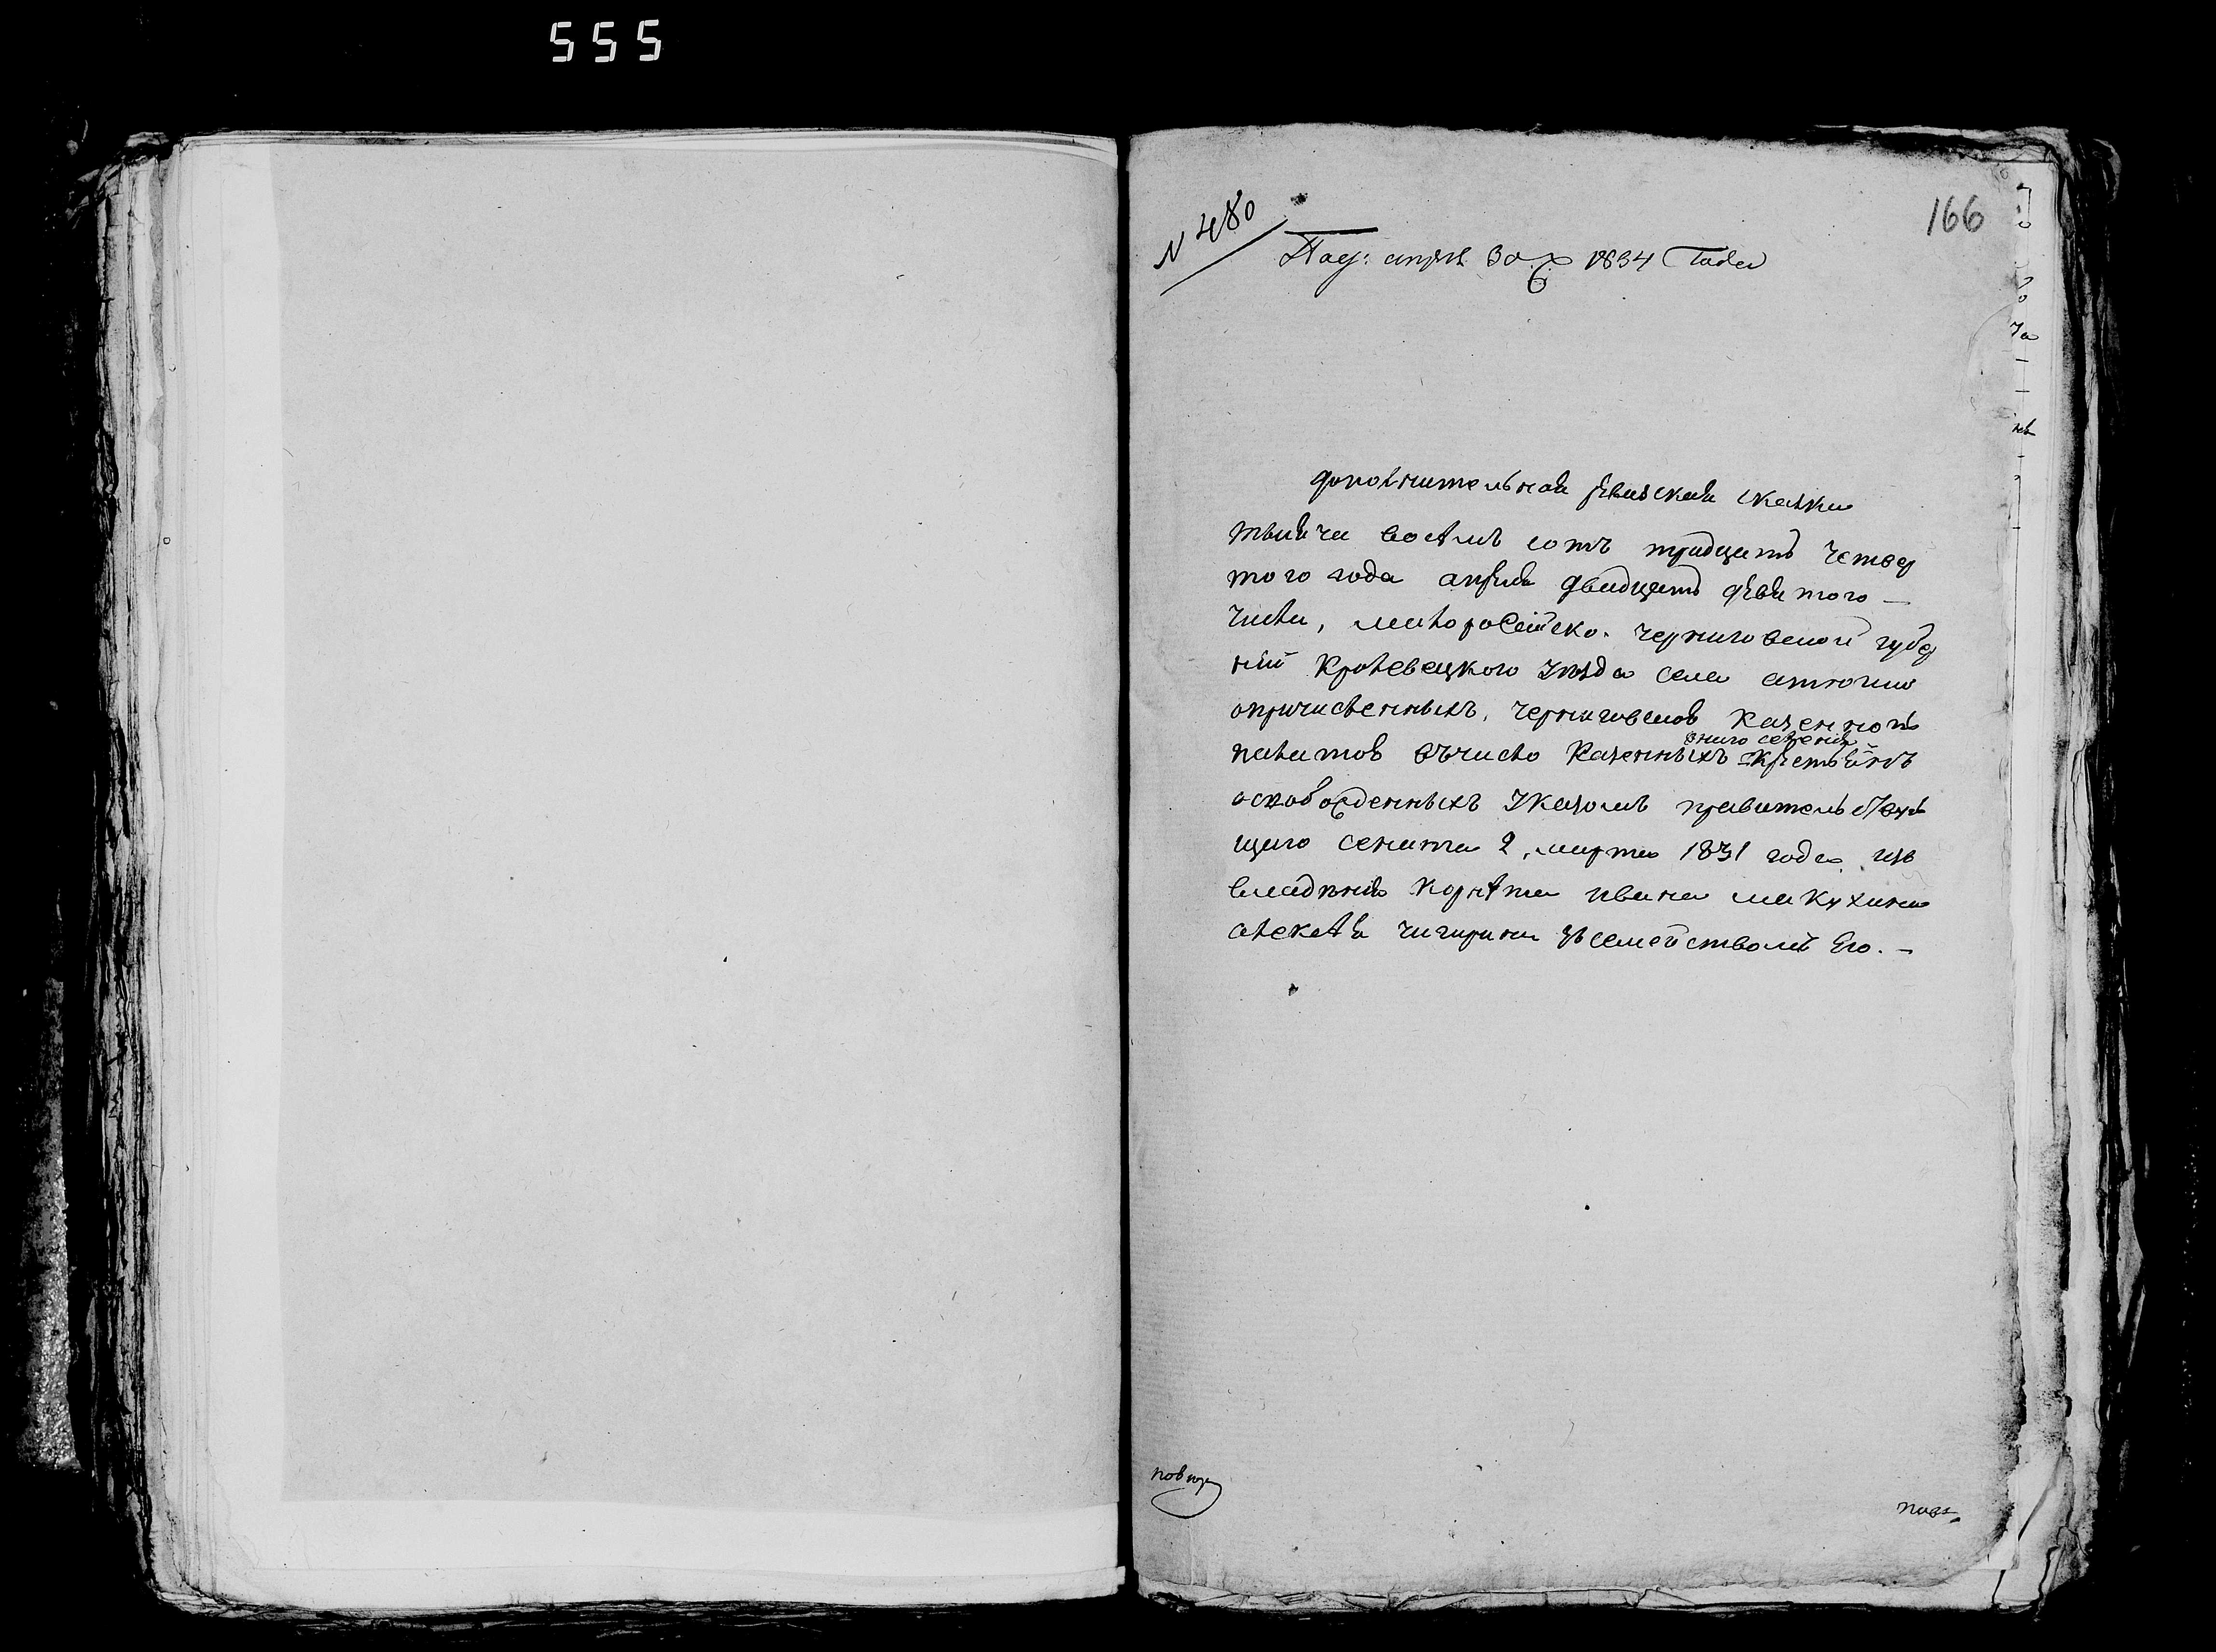 555
166
N 480
Под: апрел 30 д 1834 Года
дополнительной ревизской сказки
тысяча восемь сотъ тридцать четвер
того года апреля двадцать девятого —
числа, малоросийско. черниговской губер
нии кролевецкого уезда села атюши
опричисленныхъ, черниговской казенною
палатою въчисло казенныхъ кресть янъ
оного селения
освобожденныхъ указомъ правительствую
щаго сената 2, марта 1831 года, изъ
владения корнета ивана макухина
алексея чигирина зъсемействомъ Его. —
повер